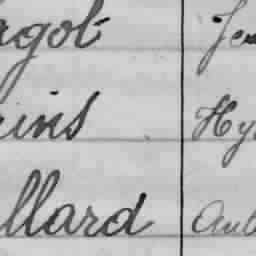 agot Je
ins Hy
llard Aub